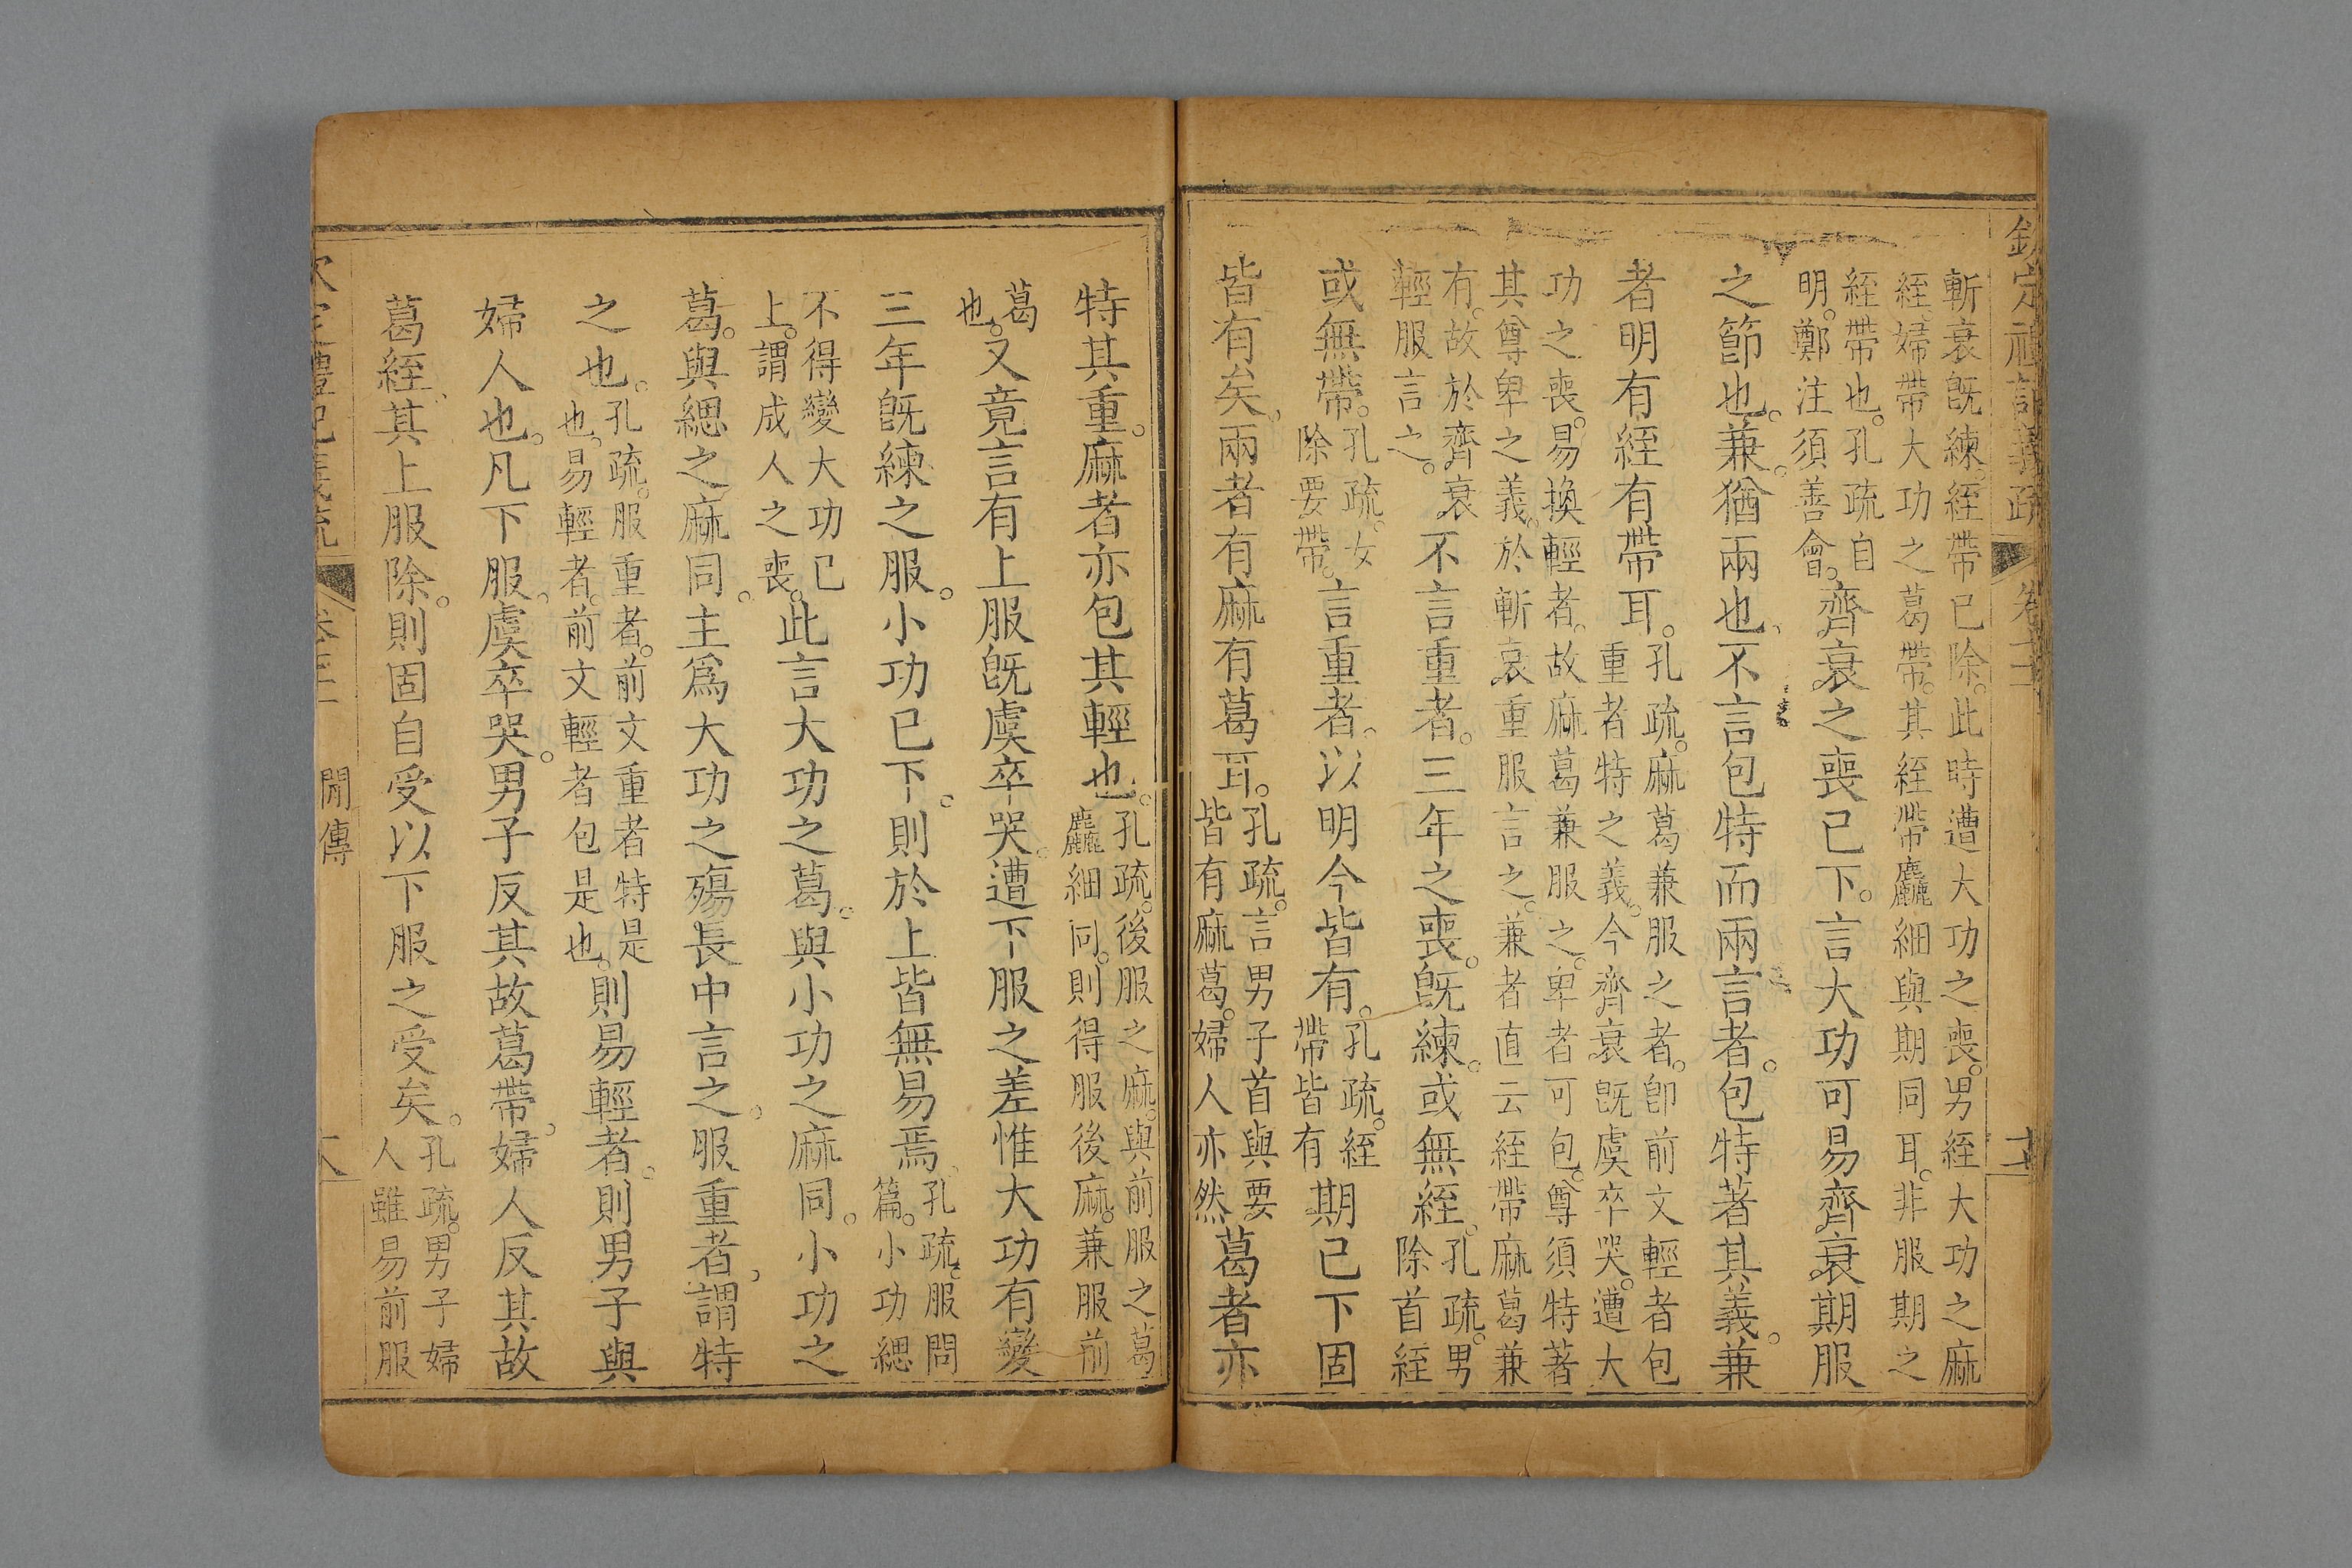 斬衰旣練、絰帶已除。此時遭大功之喪。男絰大功之麻
絰、婦帶大功之葛帶。其絰帶麤細與期同耳。非服期之
絰帶也。孔疏自明。鄭注須善會。齊衰之喪已下。言大功可易齊衰期服
之節也。兼。猶兩也、不言包特而兩言者。包特著其義。兼
者明有絰有帶耳。孔疏。麻葛兼服之者。卽前文輕者包重者特之義。今齊衰旣虞卒哭。遭大
功之喪。易換輕者。故麻葛兼服之。卑者可包。尊須特著其尊卑之義。於斬衰重服言之。兼者直云絰帶麻葛兼
有。故於齊衰輕服言之。不言重者。三年之喪。旣練。或無絰、孔疏。男除首絰
或無帶。孔疏。女除要帶。言重者。以明今皆有。孔疏。絰帶皆有期已下固
皆有矣、兩者有麻有葛耳。孔疏。言男子首與要皆有麻葛。婦人亦然葛者亦
特其重。麻者亦包其輕也。孔疏。後服之麻。與前服之葛麤細同。則得服後麻。兼服前
葛也。又竟言有上服旣虞卒哭。遭下服之差惟大功有變
三年旣練之服。小功已下。則於上皆無易焉、孔疏。服問篇。小功緦
不得變大功已上。謂成人之喪。此言大功之葛。與小功之麻同。小功之
葛。與緦之麻同。主爲大功之殤長中言之。服重者、謂特
之也。孔疏。服重者。前文重者特是也。易輕者。前文輕者包是也。則易輕者。則男子與
婦人也。凡下服、虞卒哭。男子反其故葛帶、婦人反其故
葛絰、其上服除。則固自受以下服之受矣。孔疏。男子婦人雖易前服
閒傳